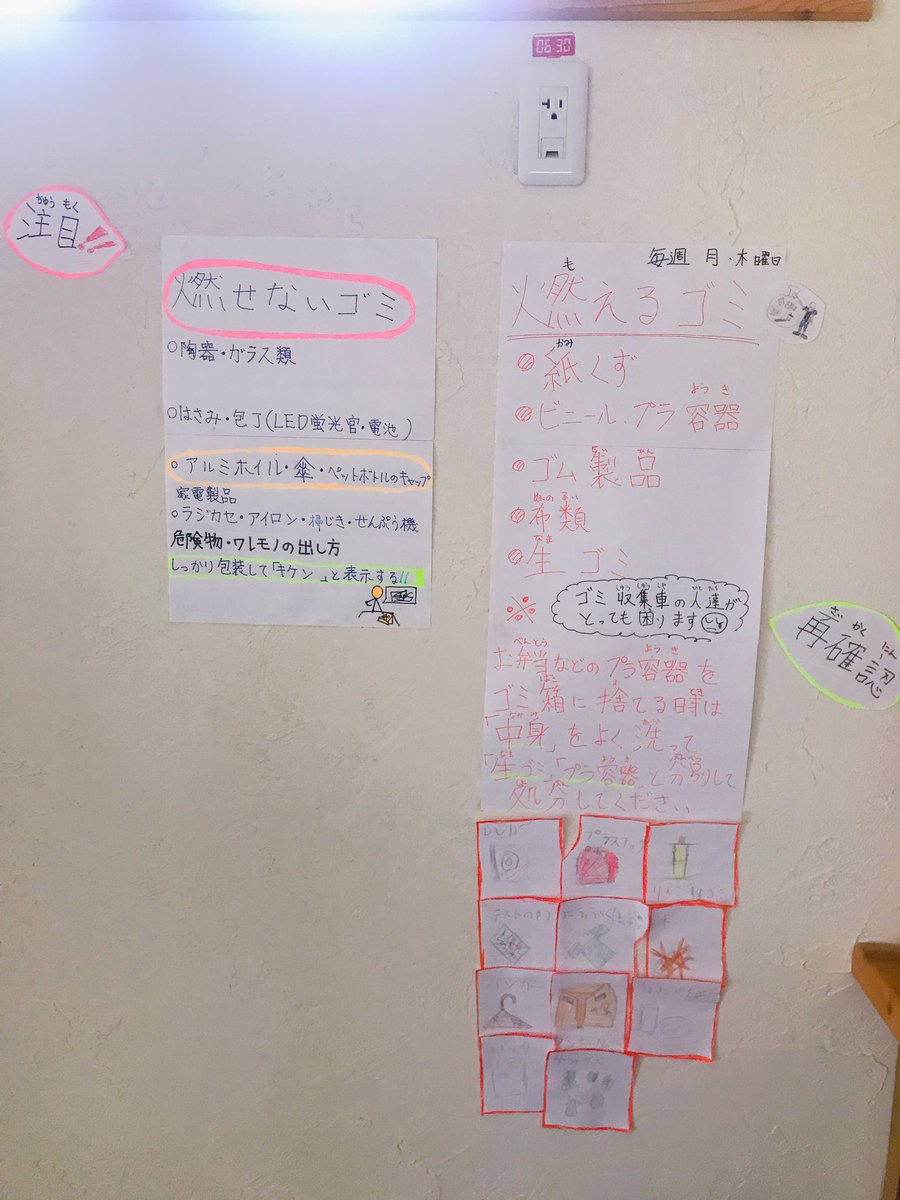 06:30
ちゅう もく
注目!!
燃せないゴミ
○陶器・ガラス類
○はさみ・包丁(LED蛍光官・電池)
○アルミホイル・傘・ペットボトルのキャップ
家電製品
○ラジカセ・アイロン・掃じき・せんぷう機
危険物・ワレモノの出し方
しっかり包装して「キケン」と表示する!!
毎週 月・木曜日
も
燃えるゴミ
かみ
紙くず
ようき
ビニール・プラ容器
せいひん
ゴム製品
ぬの るい
布類
なま
生ゴミ
しゅうしゅうしゃ ひとたち
※ ゴミ収集車の人達が
こま
とっても困ります
べんとう ようき
お弁当などのプラ容器を
ばこ す とき
ゴミ箱に捨てる時は
なかみ あら
「中身」をよく洗って
なま ようき
「生ゴミ」「プラ容器」と分別して
処分してください。
さい かく にん
再確認
DVD
プラスチック